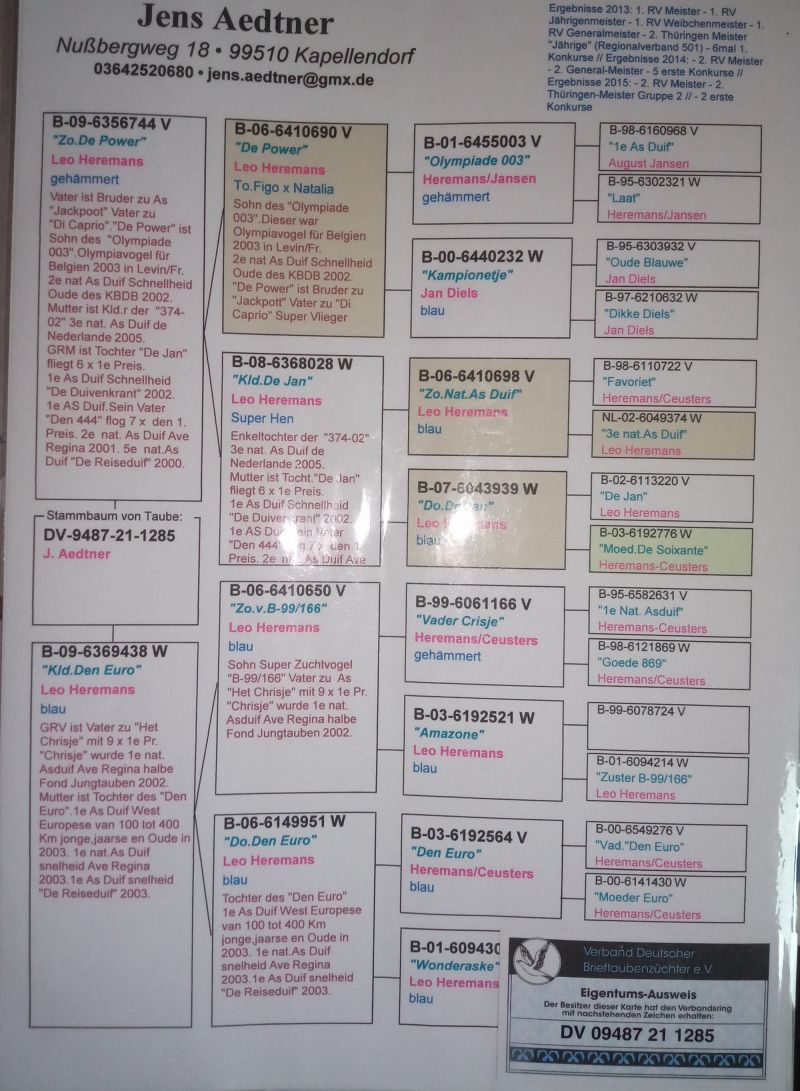 Jens Aedtner
Nußbergweg 18 • 99510 Kapellendorf
03642520680 • jens.aedtner@gmx.de
Ergebnisse 2013: 1. RV Meister - 1. RV
Jährigenmeister - 1. RV Weibchenmeister - 1.
RV Generalmeister - 2. Thüringen Meister
"Jährige" (Regionalverband 501) - 6mal 1.
Konkurse // Ergebnisse 2014: - 2. RV Meister
- 2. General-Meister - 5 erste Konkurse //
Ergebnisse 2015: - 2. RV Meister - 2.
Thüringen-Meister Gruppe 2 // - 2 erste
Konkurse
B-09-6356744 V
"Zo.De Power"
Leo Heremans
gehämmert
Vater ist Bruder zu As
"Jackpoot" Vater zu
"Di Caprio"."De Power" ist
Sohn des "Olympiade
003".Olympiavogel für
Belgien 2003 in Levin/Fr.
2e nat As Duif Schnellheid
Oude des KBDB 2002.
Mutter ist Kld.r der "374-
02" 3e nat. As Duif de
Nederlande 2005.
GRM ist Tochter "De Jan"
fliegt 6 x 1e Preis.
1e As Duif Schnellheid
"De Duivenkrant" 2002.
1e AS Duif.Sein Vater
"Den 444" flog 7 x den 1.
Preis. 2e nat. As Duif Ave
Regina 2001. 5e nat.As
Duif "De Reiseduif" 2000.
Stammbaum von Taube:
DV-9487-21-1285
J. Aedtner
B-09-6369438 W
"Kld.Den Euro"
Leo Heremans
blau
GRV ist Vater zu "Het
Chrisje" mit 9 x 1e Pr.
"Chrisje" wurde 1e nat.
Asduif Ave Regina halbe
Fond Jungtauben 2002.
Mutter ist Tochter des "Den
Euro".1e As Duif West
Europese van 100 tot 400
Km jonge,jaarse en Oude in
2003. 1e nat.As Duif
snelheid Ave Regina
2003.1e As Duif snelheid
"De Reiseduif" 2003.
B-06-6410690 V
"De Power"
Leo Heremans
To.Figo x Natalia
Sohn des "Olympiade
003".Dieser war
Olympiavogel für Belgien
2003 in Levin/Fr.
2e nat As Duif Schnellheid
Oude des KBDB 2002.
"De Power" ist Bruder zu
"Jackpott" Vater zu "Di
Caprio" Super Vlieger
B-08-6368028 W
"Kld.De Jan"
Leo Heremans
Super Hen
Enkeltochter der "374-02"
3e nat. As Duif de
Nederlande 2005.
Mutter ist Tocht."De Jan"
fliegt 6 x 1e Preis.
1e As Duif Schnellheid
"De Duivenkrant" 2002.
1e AS Duif.Sein Vater
"Den 444" flog 7 x den 1.
Preis. 2e nat. As Duif Ave
B-06-6410650 V
"Zo.v.B-99/166"
Leo Heremans
blau
Sohn Super Zuchtvogel
"B-99/166" Vater zu As
"Het Chrisje" mit 9 x 1e Pr.
"Chrisje" wurde 1e nat.
Asduif Ave Regina halbe
Fond Jungtauben 2002.
B-06-6149951 W
"Do.Den Euro"
Leo Heremans
blau
Tochter des "Den Euro"
1e As Duif West Europese
van 100 tot 400 Km
jonge,jaarse en Oude in
2003. 1e nat.As Duif
snelheid Ave Regina
2003.1e As Duif snelheid
"De Reiseduif" 2003.
B-01-6455003 V
"Olympiade 003"
Heremans/Jansen
gehämmert
B-00-6440232 W
"Kampionetje"
Jan Diels
blau
B-06-6410698 V
"Zo.Nat.As Duif"
Leo Heremans
blau
B-07-6043939 W
"Do.De Jan"
Leo Heremans
blau
B-99-6061166 V
"Vader Crisje"
Heremans/Ceusters
gehämmert
B-03-6192521 W
"Amazone"
Leo Heremans
blau
B-03-6192564 V
"Den Euro"
Heremans/Ceusters
blau
B-01-609430
"Wonderaske"
Leo Heremans
blau
B-98-6160968 V
"1e As Duif"
August Jansen
B-95-6302321 W
"Laat"
Heremans/Jansen
B-95-6303932 V
"Oude Blauwe"
Jan Diels
B-97-6210632 W
"Dikke Diels"
Jan Diels
B-98-6110722 V
"Favoriet"
Heremans/Ceusters
NL-02-6049374 W
"3e nat.As Duif"
Leo Heremans
B-02-6113220 V
"De Jan"
Leo Heremans
B-03-6192776 W
"Moed.De Soixante"
Heremans-Ceusters
B-95-6582631 V
"1e Nat. Asduif"
Heremans-Ceusters
B-98-6121869 W
"Goede 869"
Heremans/Ceusters
B-99-6078724 V
B-01-6094214 W
"Zuster B-99/166"
Leo Heremans
B-00-6549276 V
"Vad."Den Euro"
Heremans/Ceusters
B-00-6141430 W
"Moeder Euro"
Heremans/Ceusters
Verband Deutscher
Brieftaubenzüchter e.V.
Eigentums-Ausweis
Der Besitzer dieser Karte hat den Verbandsring
mit nachstehenden Zeichen erhalten:
DV 09487 21 1285